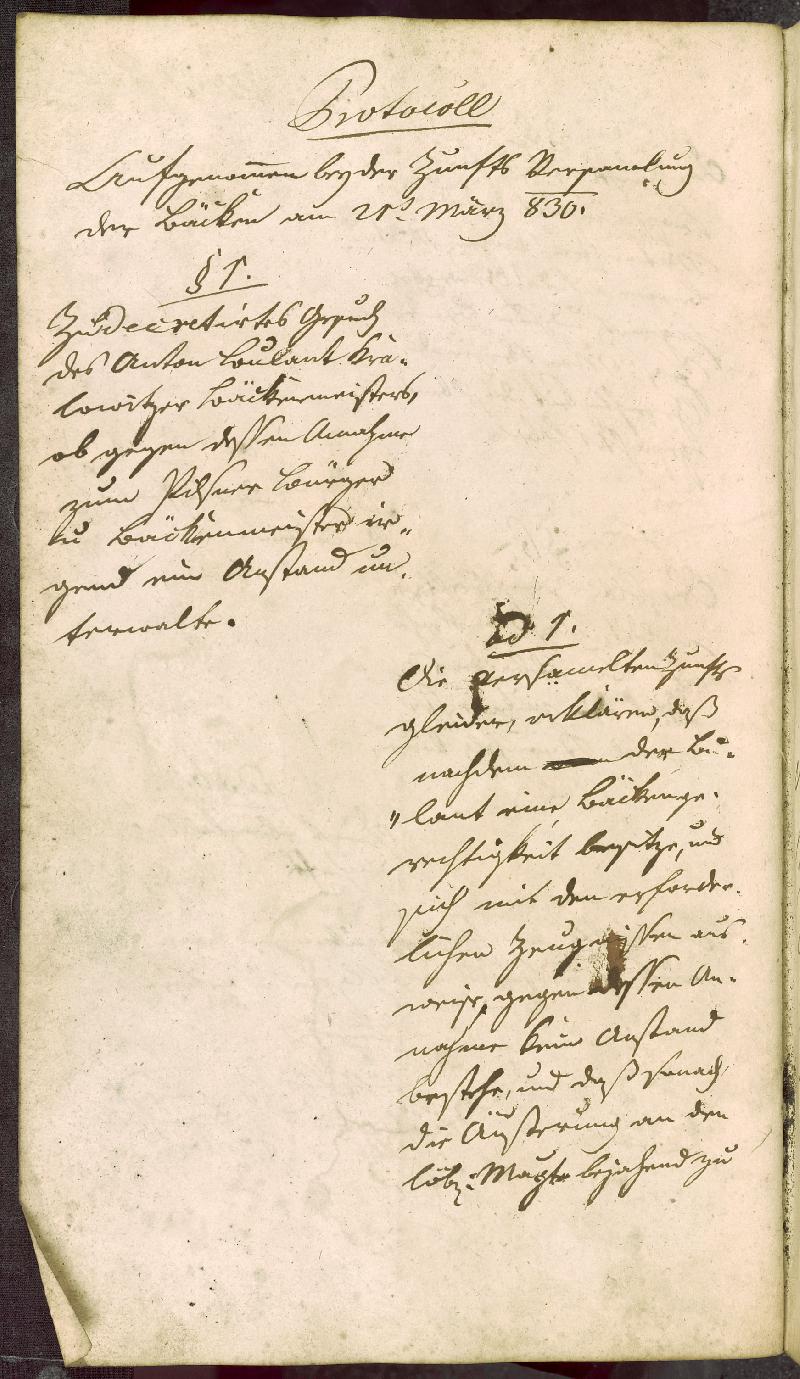 Protocoll
Aufgenommen bey der Zunfts Versamlung
der Bäcken am 21t März 830.
§ 1.
Zudecretirtes Gesuch
des Anton Bulant Kra-
lowitzer Bäckenmeisters,
ob gegen dessen Annahme
zum Pilsner Bürger
u Bäckenmeister ir-
gend ein Anstand un-
terwalte.
ad 1.
Die versamelten Zunfts
glieder, erklären, daß
nachdem der Bu-
"lant eine Bäckenge-
rechtigkeit besitze, und
sich mit den erforder-
lichen Zeugnissen aus-
weise, gegen dessen An-
nahme kein Anstand
bestehe, und daß sonach
die Äusserung an den
löbl: Magt bejahend zu